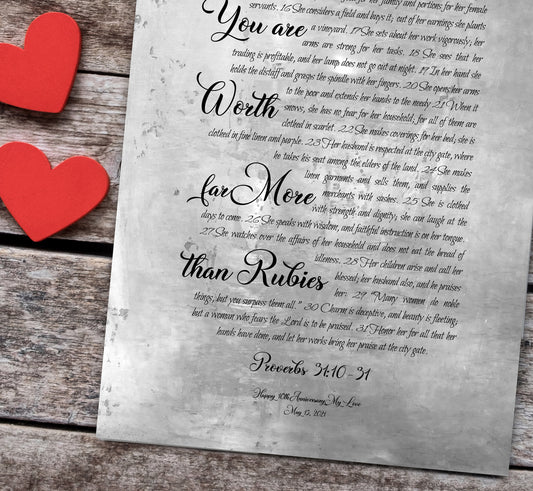 for her family and portions for her female
servants. 16 She considers a field and buys it; out of her earnings she plants
You are
a vineyard. 17 She sets about her work vigorously; her
arms are strong for her tasks. 18 She sees that her
trading is profitable, and her lamp does not go out at night. 19 In her hand she
holds the distaff and grasps the spindle with her fingers. 20 She opens her arms
Worth
to the poor and extends her hands to the needy. 21 When it
snows, she has no fear for her household; for all of them are
clothed in scarlet. 22 She makes coverings for her bed; she is
clothed in fine linen and purple. 23 Her husband is respected at the city gate, where
he takes his seat among the elders of the land. 24 She makes
far More
linen garments and sells them, and supplies the
merchants with sashes. 25 She is clothed
with strength and dignity; she can laugh at the
days to come. 26 She speaks with wisdom, and faithful instruction is on her tongue.
27 She watches over the affairs of her household and does not eat the bread of
than Rubies
idleness. 28 Her children arise and call her
blessed; her husband also, and he praises
her: 29 "Many women do noble
things, but you surpass them all." 30 Charm is deceptive, and beauty is fleeting;
but a woman who fears the Lord is to be praised. 31 Honor her for all that her
hands have done, and let her works bring her praise at the city gate.
Proverbs 31:10-31
Happy 10th Anniversary, My Love
May 15, 2021